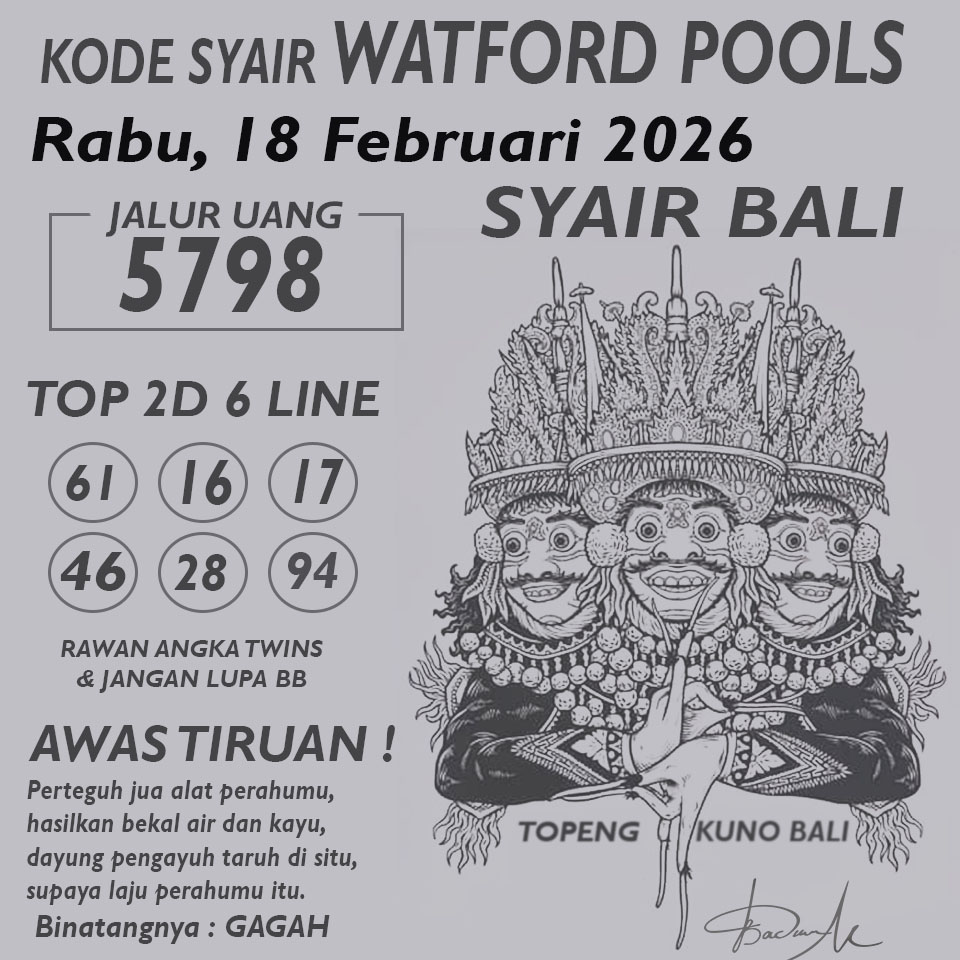 KODE SYAIR WATFORD POOLS
Rabu, 18 Februari 2026
SYAIR BALI
JALUR UANG
5798
TOP 2D 6 LINE
61 16 17
46 28 94
RAWAN ANGKA TWINS
& JANGAN LUPA BB
AWAS TIRUAN !
Perteguh jua alat perahumu,
hasilkan bekal air dan kayu,
dayung pengayuh taruh di situ,
supaya laju perahumu itu.
Binatangnya : GAGAH
TOPENG KUNO BALI